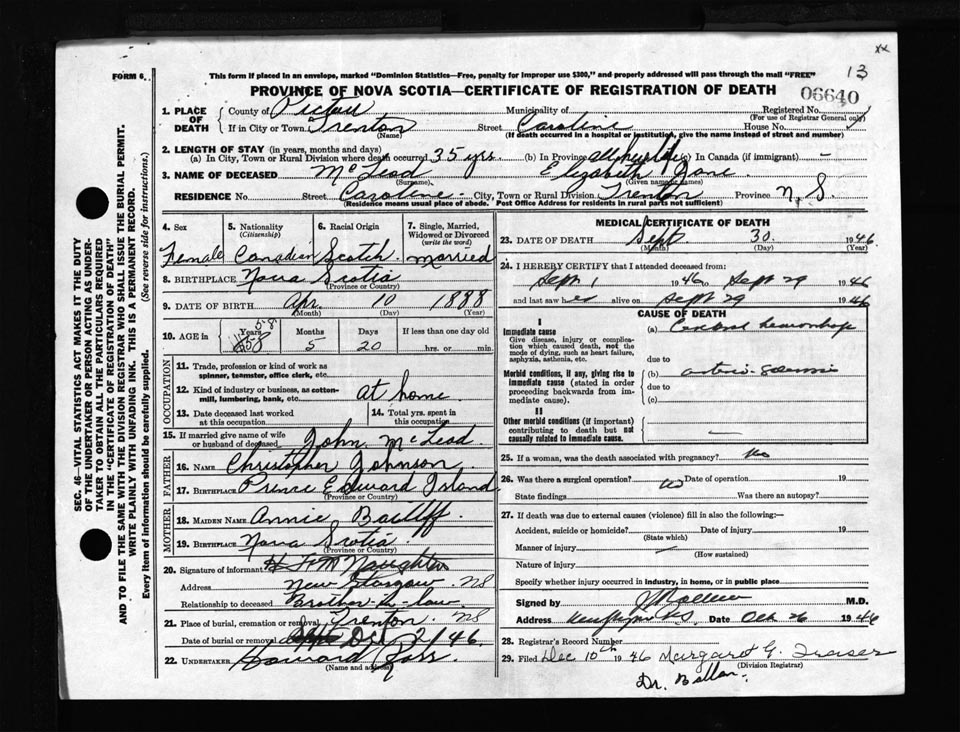 xx
13
FORM 6.
This form if placed in an envelope, marked "Dominion Statistics—Free, penalty for improper use $300," and properly addressed will pass through the mail "FREE"
PROVINCE OF NOVA SCOTIA—CERTIFICATE OF REGISTRATION OF DEATH
06640
1. PLACE OF DEATH
County of Pictou Municipality of Registered No.
(For use of Registrar General only)
If in City or Town Trenton Street Caroline House No.
(Name) (If death occurred in a hospital or institution, give the name instead of street and number)
2. LENGTH OF STAY (in years, months and days)
(a) In City, Town or Rural Division where death occurred 35 yrs. (b) In Province all her life (c) In Canada (if immigrant) -
3. NAME OF DECEASED McLeod Elizabeth Jane
(Surname) (Given name or names)
RESIDENCE No. Street Caroline City, Town or Rural Division Trenton Province N.S
(Residence means usual place of abode. Post Office Address for residents in rural parts not sufficient)
4. Sex 5. Nationality (Citizenship) 6. Racial Origin 7. Single, Married, Widowed or Divorced (write the word)
Female Canadian Scotch. Married
8. BIRTHPLACE Nova Scotia
(Province or County)
9. DATE OF BIRTH Apr. 10 1888
(Month) (Day) (Year)
10. AGE in Years Months Days If less than one day old
58 5 20 hrs. or min.
OCCUPATION
11. Trade, profession or kind of work as spinner, teamster, office clerk, etc.
12. Kind of industry or business, as cotton-mill, lumbering, bank, etc. at home
13. Date deceased last worked at this occupation 14. Total yrs. spent in this occupation
15. If married give name of wife or husband of deceased John McLeod
FATHER
16. NAME Christopher Johnson
17. BIRTHPLACE Prince Edward Island
(Province or Country)
MOTHER
18. MAIDEN NAME Annie
19. BIRTHPLACE Nova Scotia
(Province or Country)
20. Signature of informant McNaughton
Address New Glasgow NS
Relationship to deceased Brother-in-law
21. Place of burial, cremation or removal Trenton NS
Date of burial or removal Oct 2/46
22. UNDERTAKER Howard Ross.
(Name and address)
MEDICAL CERTIFICATE OF DEATH
23. DATE OF DEATH Sept. 30. 1946
(Month) (Day) (Year)
24. I HEREBY CERTIFY that I attended deceased from:
Sept 1 1946 to Sept 29 1946
and last saw her alive on Sept 29 1946
CAUSE OF DEATH
I
Immediate cause
Give disease, injury or complication which caused death, not the mode of dying, such as heart failure, asphyxia, asthenia, etc.
(a) Cerebral hemorrhage
due to
Morbid conditions, if any, giving rise to immediate cause (stated in order proceeding backwards from immediate cause).
(b)
due to
(c)
II
Other morbid conditions (if important) contributing to death but not causally related to immediate cause.
25. If a woman, was the death associated with pregnancy? No
26. Was there a surgical operation? No Date of operation 19
State findings Was there an autopsy?
27. If death was due to external causes (violence) fill in also the following:—
Accident, suicide or homicide? Date of injury 19
(State which)
Manner of injury
(How sustained)
Nature of injury
Specify whether injury occurred in industry, in home, or in public place
Signed by M.D.
Address Date Oct 26 1946
28. Registrar's Record Number
29. Filed Dec 10th 1946 Margaret G. Fraser
(Division Registrar)
Dr.
SEC. 46—VITAL STATISTICS ACT MAKES IT THE DUTY
OF THE UNDERTAKER OR PERSON ACTING AS UNDER-
TAKER TO OBTAIN ALL THE PARTICULARS REQUIRED
IN THE "CERTIFICATE OF REGISTRATION OF DEATH"
AND TO FILE THE SAME WITH THE DIVISION REGISTRAR WHO SHALL ISSUE THE BURIAL PERMIT.
WRITE PLAINLY WITH UNFADING INK. THIS IS A PERMANENT RECORD.
Every item of information should be carefully supplied. (See reverse side for instructions.)